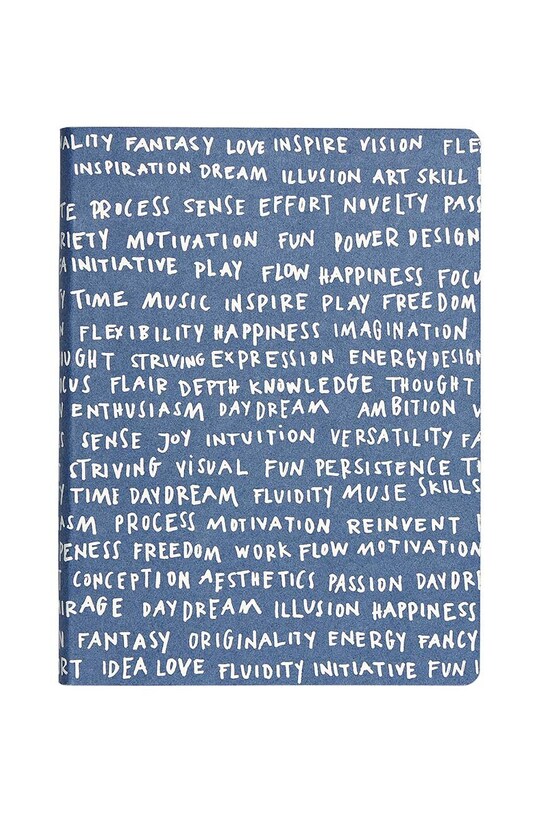 ALITY FANTASY LOVE INSPIRE VISION FLE
INSPIRATION DREAM ILLUSION ART SKILL
TE PROCESS SENSE EFFORT NOVELTY PASS
RIETY MOTIVATION FUN POWER DESIGN
A INITIATIVE PLAY FLOW HAPPINESS FOCU
Y TIME MUSIC INSPIRE PLAY FREEDOM
N FLEXIBILITY HAPPINESS IMAGINATION
UGHT STRIVING EXPRESSION ENERGY DESIGN
CUS FLAIR DEPTH KNOWLEDGE THOUGHT
ENTHUSIASM DAYDREAM AMBITION V
S SENSE JOY INTUITION VERSATILITY FA
STRIVING VISUAL FUN PERSISTENCE T
Y TIME DAYDREAM FLUIDITY MUSE SKILLS
ASM PROCESS MOTIVATION REINVENT
PENESS FREEDOM WORK FLOW MOTIVATION
CONCEPTION AESTHETICS PASSION DAYDR
RAGE DAYDREAM ILLUSION HAPPINESS
N FANTASY ORIGINALITY ENERGY FANCY
RT IDEA LOVE FLUIDITY INITIATIVE FUN I